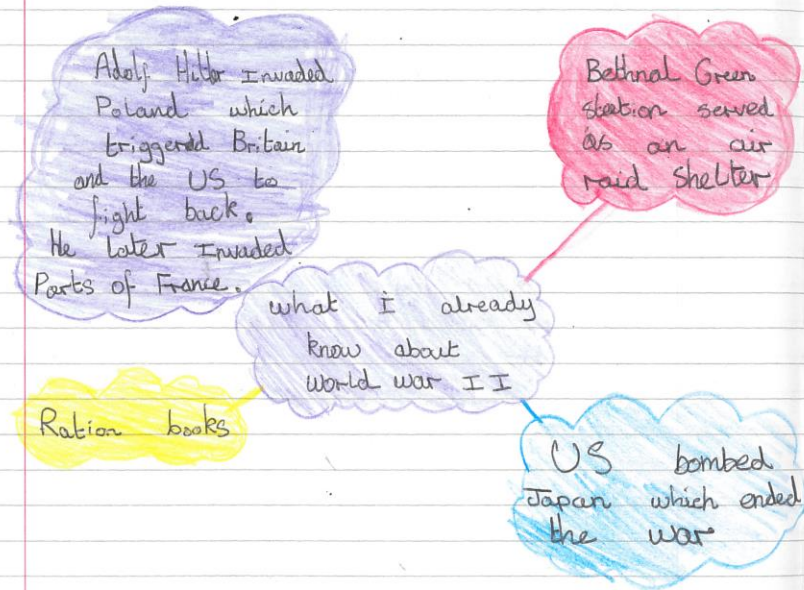 Adolf Hitler Invaded
Poland which
triggered Britain
and the US to
fight back.
He later Invaded
Parts of France.
Bethnal Green
station served
as an air
raid shelter
what I already
know about
world war II
Ration books
US bombed
Japan which ended
the war